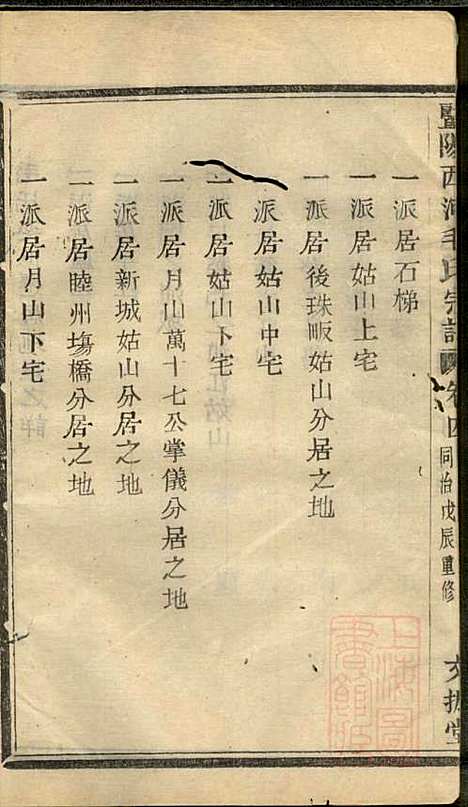 暨陽西河毛氏宗譜 卷四 同治戊辰重修 文振堂
一派居石梯
一派居姑山上宅
一派居後珠畈姑山分居之地
一派居姑山中宅
一派居姑山下宅
一派居月山萬十七公掌儀分居之地
一派居新城姑山分居之地
一派居睦州塲橋分居之地
一派居月山下宅
上海圖書館藏